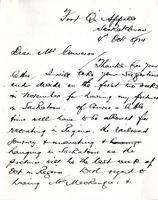 Fort Qu'Appelle
Saskatchewan
4th Oct 1924
Dear Mr Cameron
Thanks for your
letter, I will take your suggestion
and decide on the first two weeks
in November for having my pictures
in Saskatoon of course a little
time will have to be allowed for
receiving in Regina, the railroad
journey + unpacking +
hanging in Saskatoon as the
pictures will be the last week of
Oct in Regina. Kind regards to
having Mr MacKenzie +